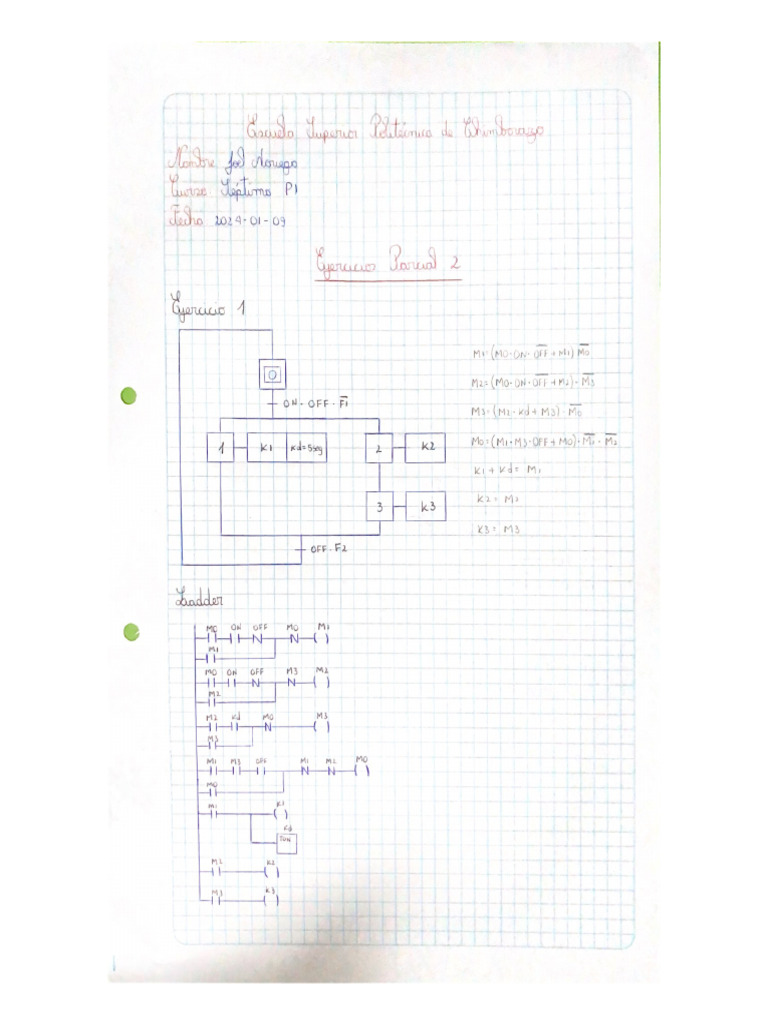 Escuela Superior Politécnica de Chimborazo
Nombre Joel Noriega
Curso Séptimo P1
Fecha 2024-01-09
Ejercicios Parcial 2
Ejercicio 1
0
ON · OFF · F̅1̅
1 K1 Kd=5seg 2 K2
3 K3
OFF · F2
M1=(M0·ON·O̅F̅F̅+M1)·M̅0̅
M2=(M0·ON·O̅F̅F̅+M2)·M̅3̅
M3=(M2·Kd+M3)·M̅0̅
M0=(M1·M3·OFF+M0)·M̅1̅·M̅2̅
K1+Kd=M1
K2=M2
K3=M3
Ladder
M0 ON OFF M0 M1
M1
M0 ON OFF M3 M2
M2
M2 Kd M0 M3
M3
M1 M3 OFF M1 M2 M0
M0
M1 K1
Kd
TON
M2 K2
M3 K3